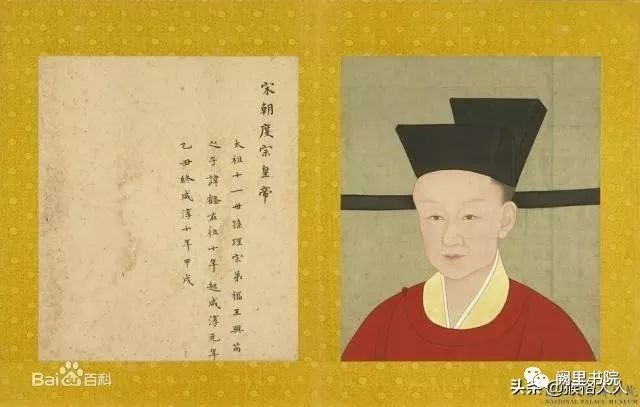 宋朝度宗皇帝
太祖十一世孫理宗弟福王與芮
之子諱禥在位十年起咸淳元年
乙丑終咸淳十年甲戌
Bai百科
阙里书院
头条
NATIONAL PALACE MUSEUM